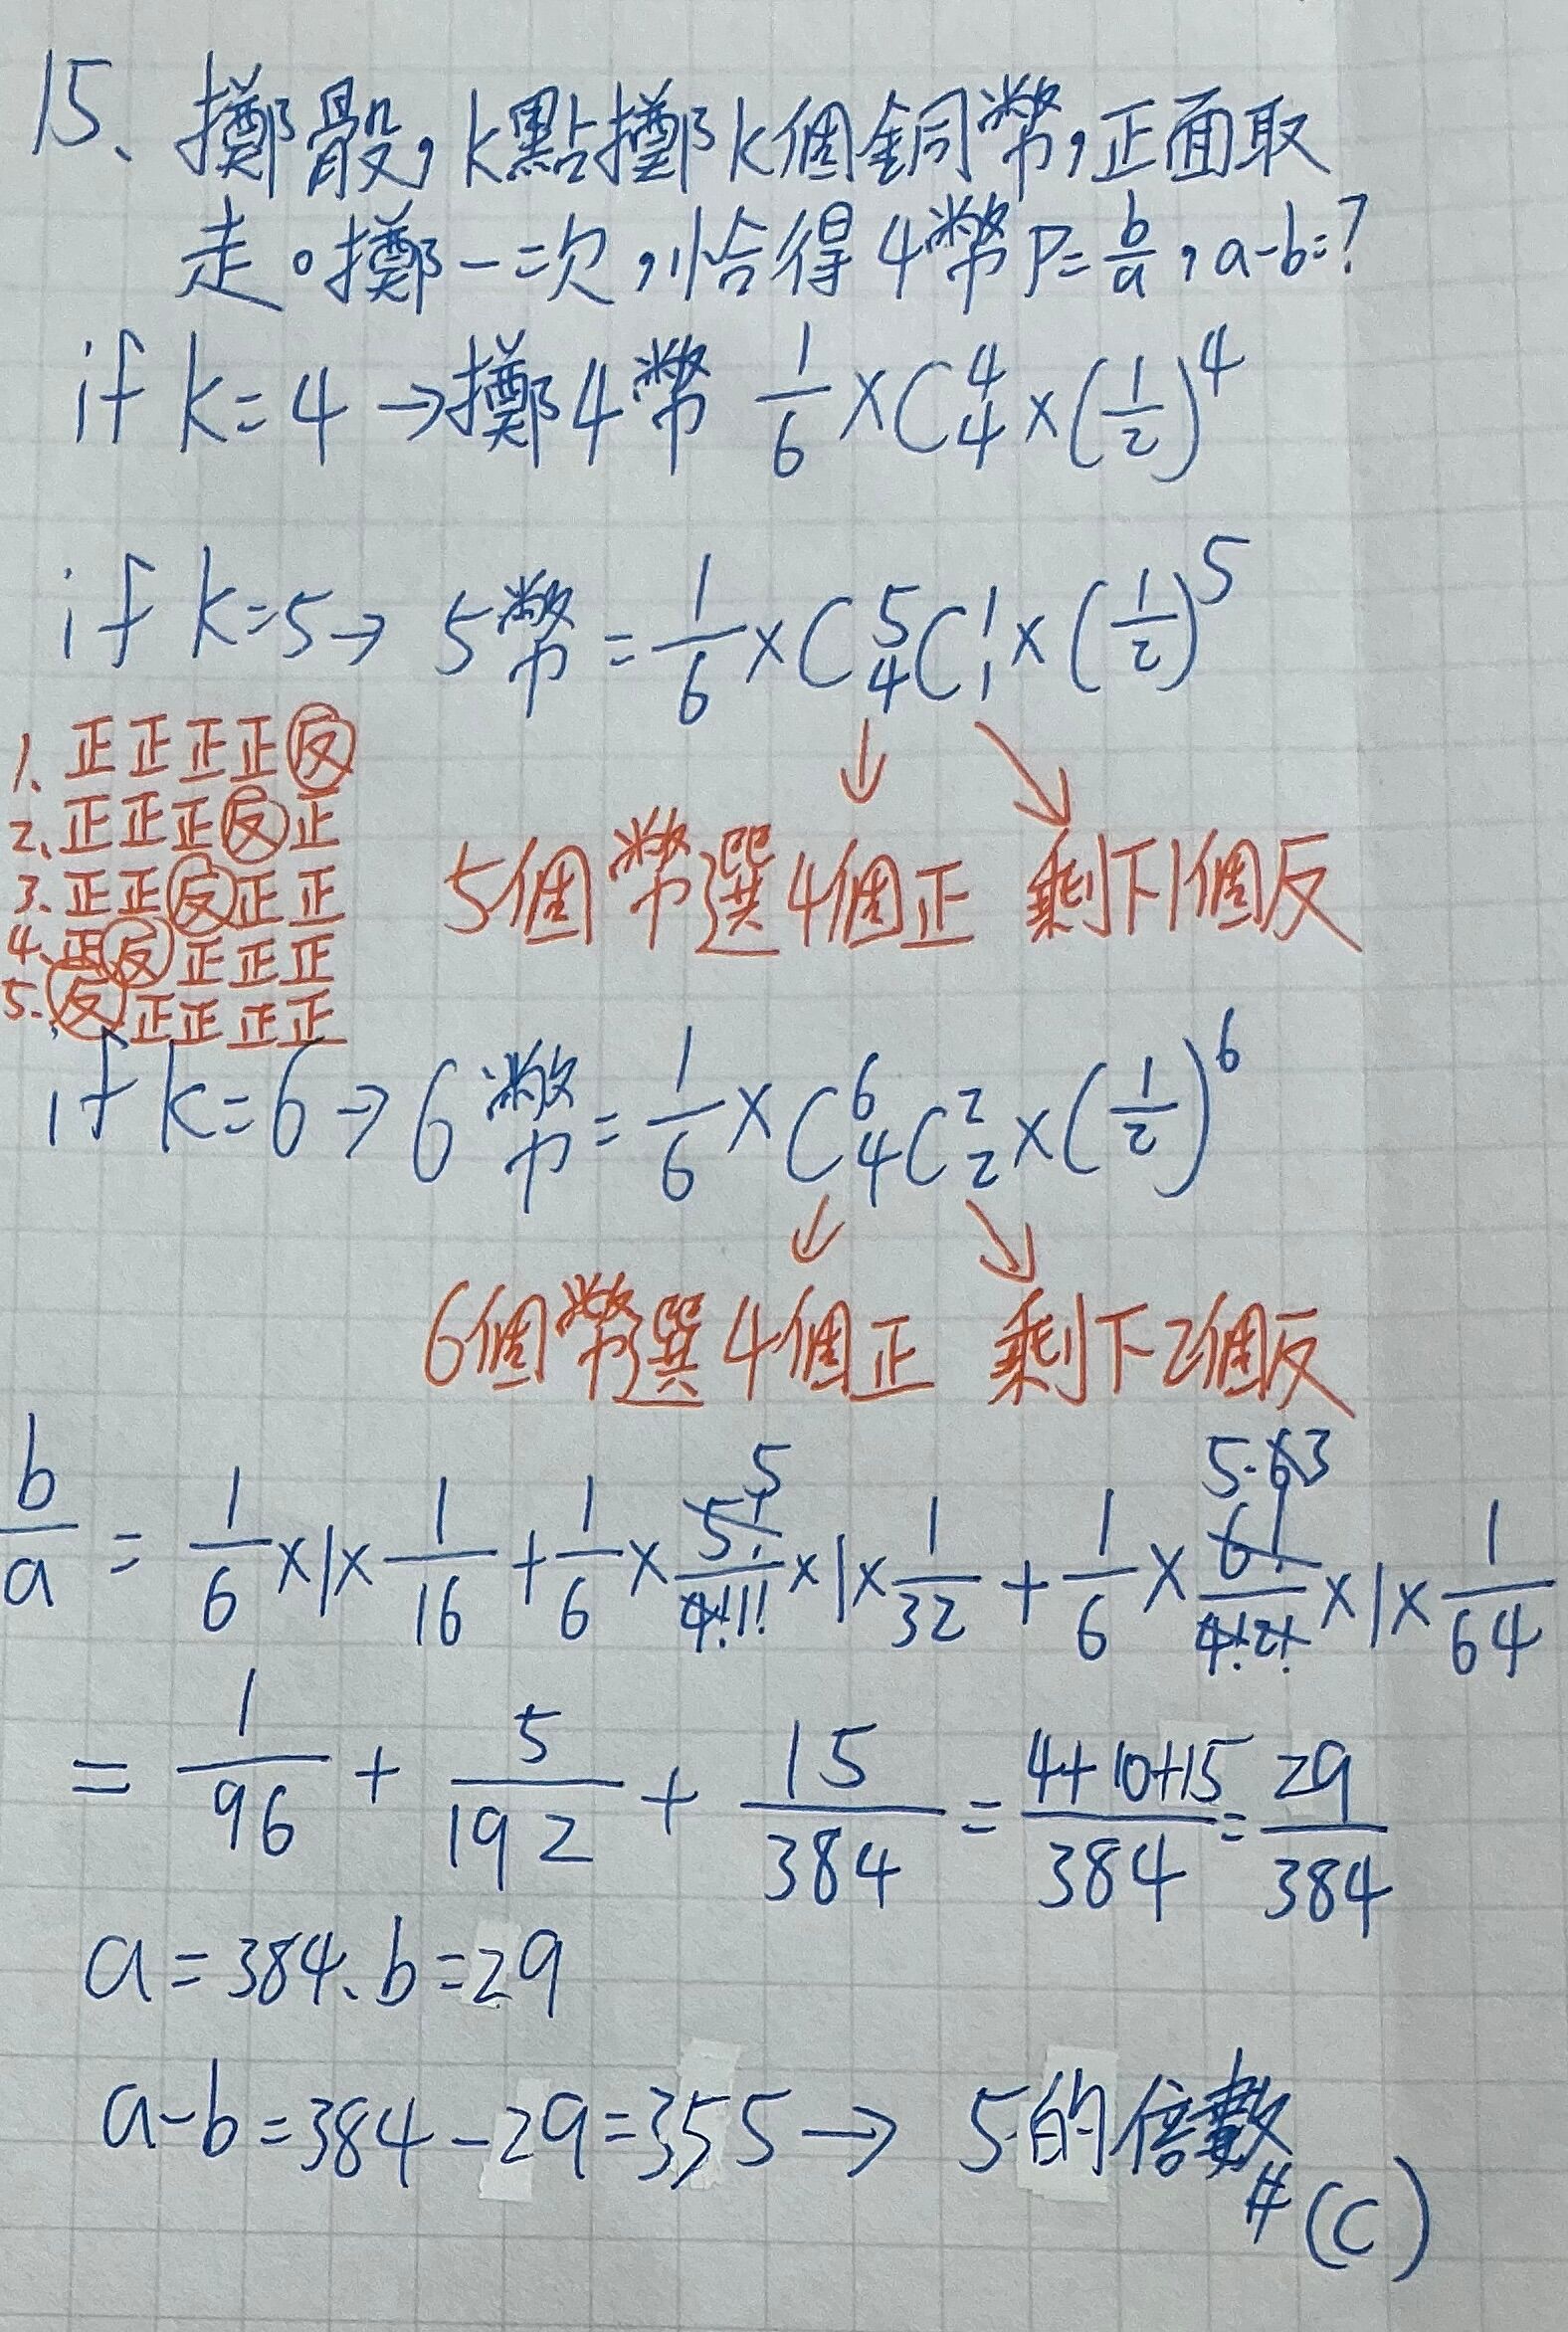 15、擲骰,k點擲k個銅幣,正面取
走。擲一次,恰得4幣P=b/a,a-b=?
if k=4→擲4幣 1/6×C⁴₄×(1/2)⁴
if k=5→ 5幣=1/6×C⁵₄C¹₁×(1/2)⁵
1、正正正正反
2、正正正反正
3、正正反正正
4、正反正正正
5、反正正正正
5個幣選4個正 剩下1個反
if k=6→6幣=1/6×C⁶₄C²₂×(1/2)⁶
6個幣選4個正 剩下2個反
b/a=1/6×1×1/16+1/6×5!/4!1!×1×1/32+1/6×6!/4!2!×1×1/64
=1/96+5/192+15/384=4+10+15/384=29/384
a=384、b=29
a-b=384-29=355→5的倍數
#(C)